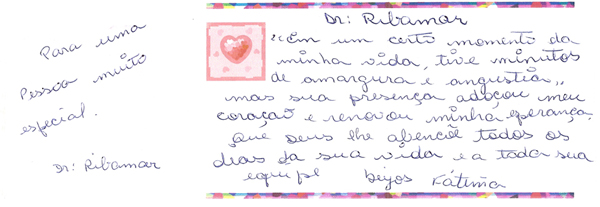 Para uma
Pessoa muito
especial.
Dr: Ribamar
Dr: Ribamar
"Em um certo momento da
minha vida, tive minutos
de amargura e angustia,,
mas sua presença adoçou meu
coração e renovou minha esperança.
Que Deus lhe abençõe todos os
dias da sua vida e a toda sua
equipe beijos Fátima